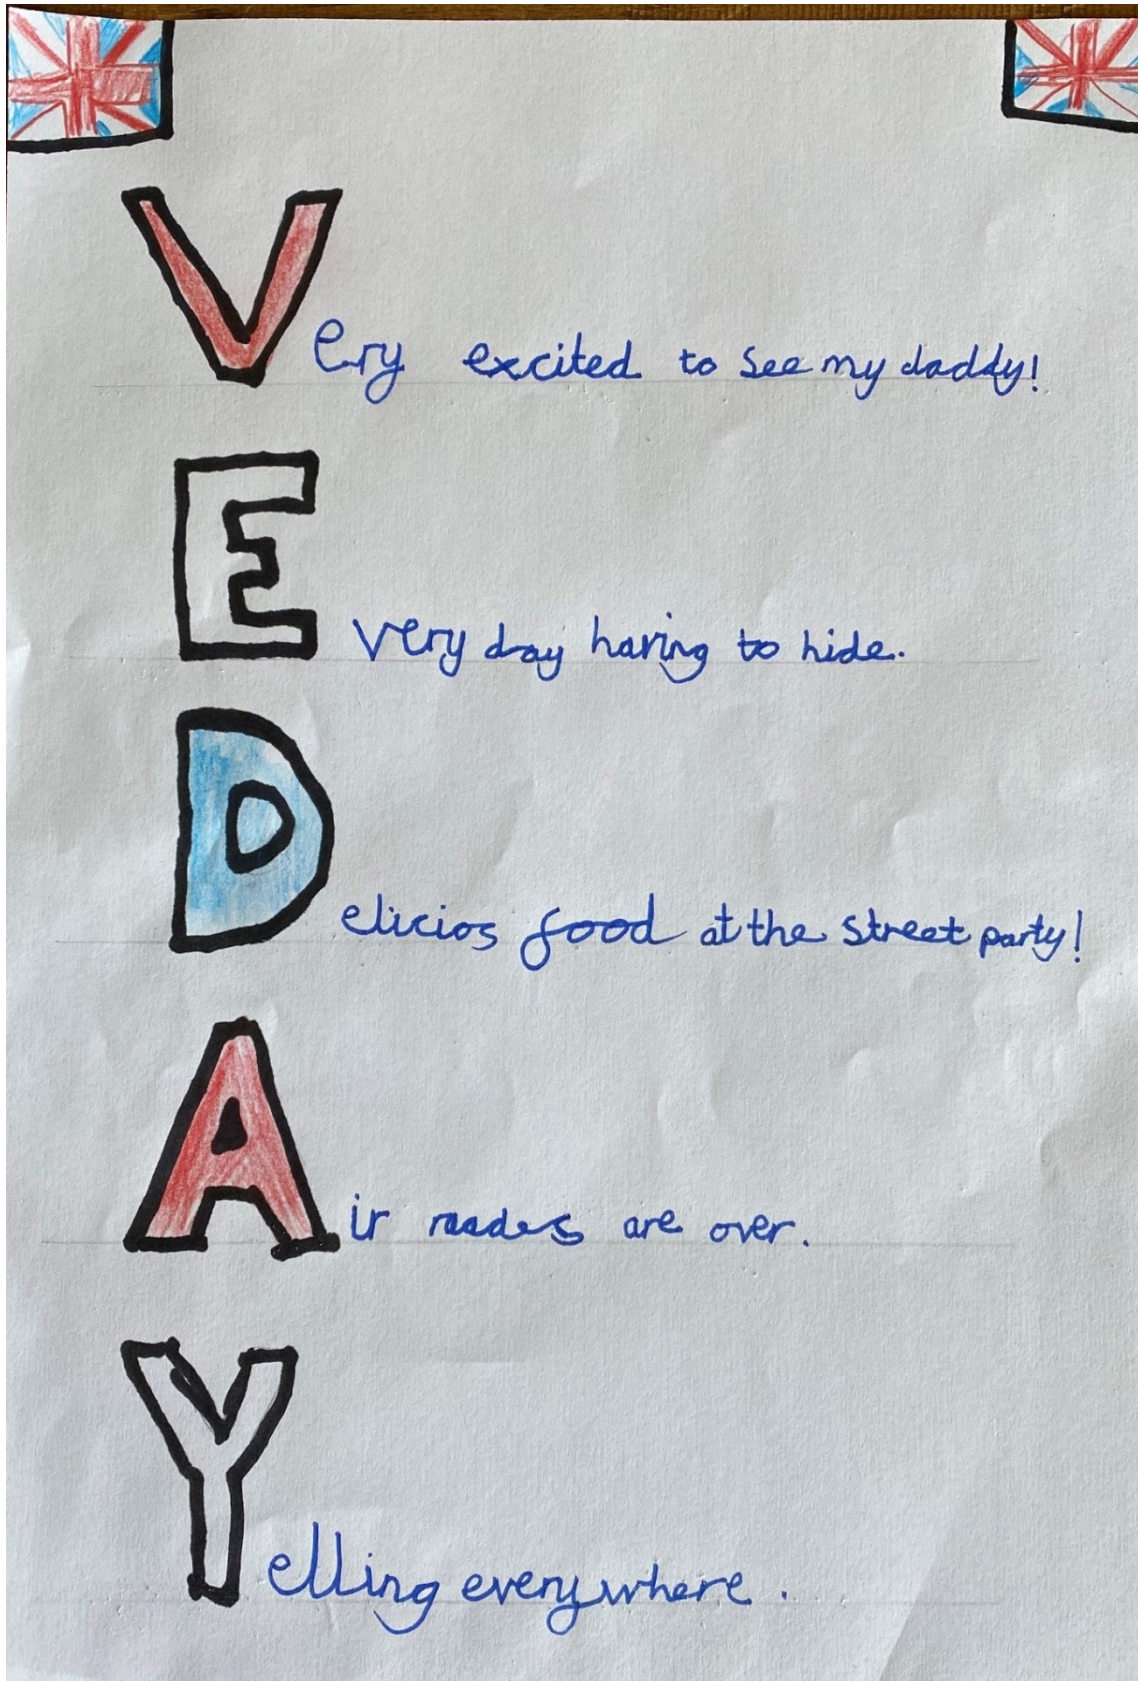 Very excited to see my daddy!
Every day having to hide.
Delicios food at the street party!
Air raades are over.
Yelling everywhere.